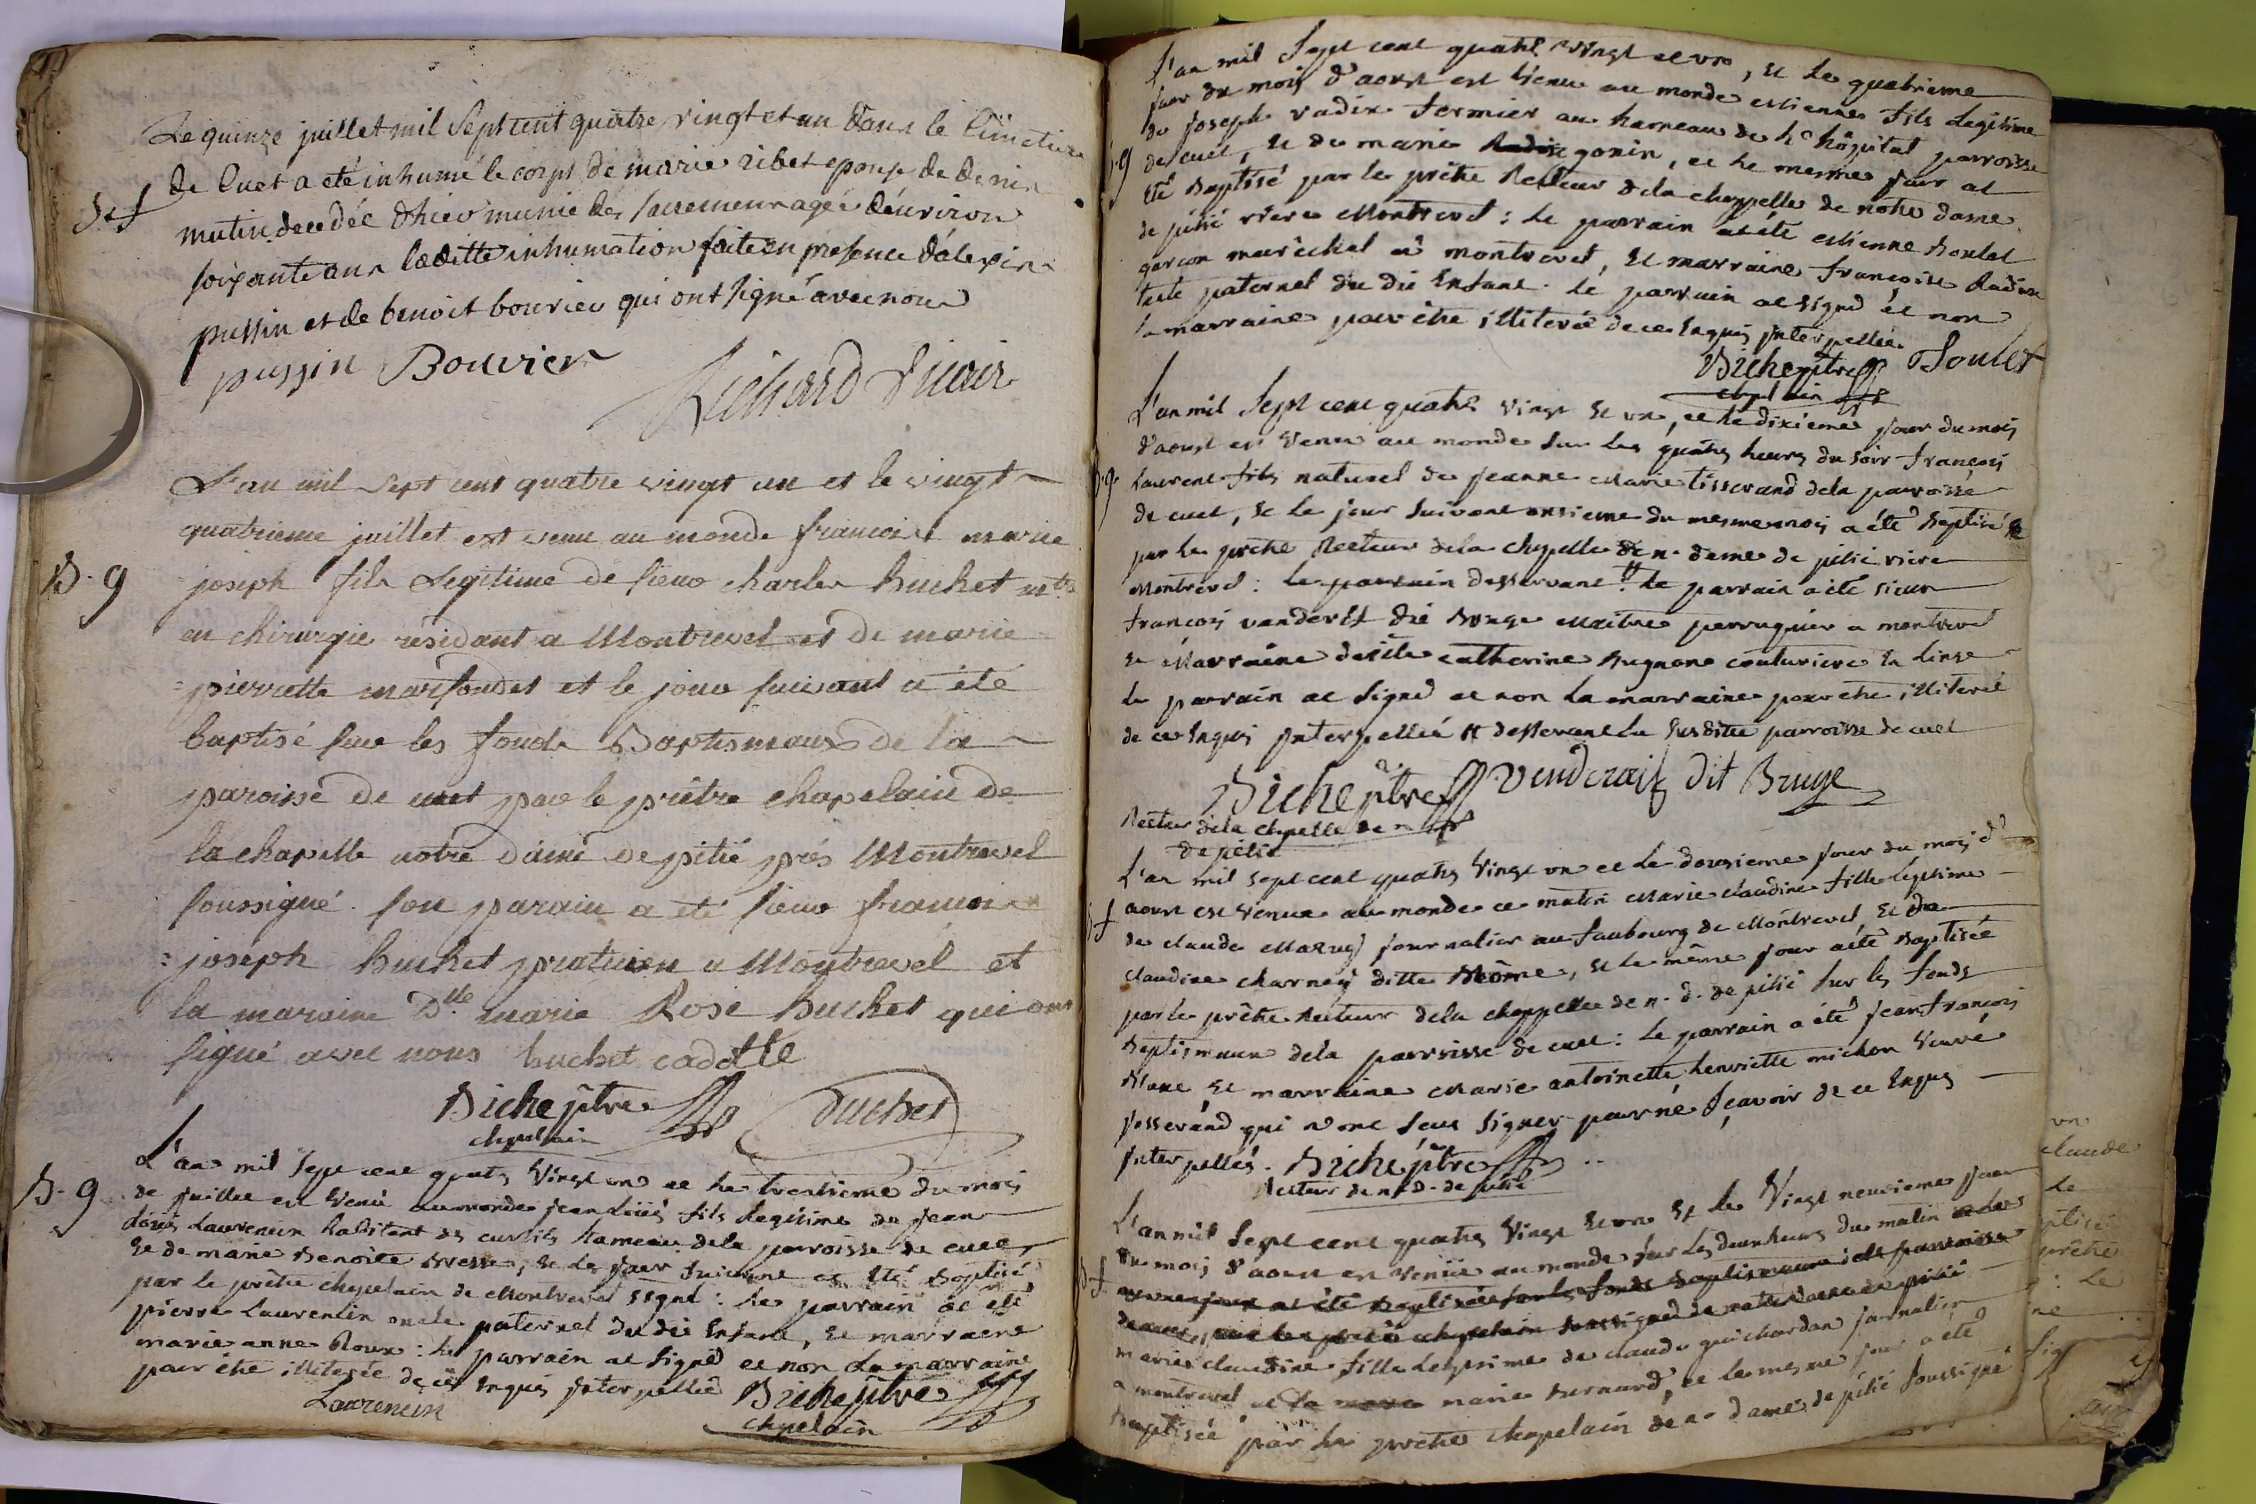 Le quinze juillet mil Sept cent quatre vingt et un dans le Cimetiere
de Cuet a eté inhumé le corps de marie ribet epouse de denis
S. f
mutin decedée d'hier munie des sacremens agée d'environ
soixante ans laditte inhumation faite en presence d'alexis
pussin et de benoit bouvier qui ont signé avec nous
pussin Bouvier
Richard vicair
L'an mil Sept cent quatre vingt un et le vingt
quatrieme juillet est venu au monde francois marie
B. g
joseph fils Legitime de sieur charles buchet mtre
en chirurgie residant a Montrevel et de marie
pierrette marfondet et le jour suivant a été
baptisé sur les fonds Baptismaux de la
paroisse de cuet par le prêtre chapelain de
la chapelle notre dame de pitié prés Montrevel
soussigné. son parain a été sieur francois
joseph buchet praticien a Montrevel et
la maraine Dlle marie Rose buchet qui ont
signé avec nous buchet cadette
Biche ptre buchet
chapelain
L'an mil Sept cent quatre Vingt un et le trentieme du mois
B. g
de juillet est Venu au monde jean Louis fils Legitime de jean
Louis Laurencin habitant des curtils hameau de la parroisse de cuet
et de marie Benoite bresse, et le jour suivant at eté Baptisé
par le prêtre chapelain de Montrevel signé : le parrain at eté
pierre Laurencin oncle paternel du dit Enfant, et marraine
marie anne Roux : le parrain at signé et non la marraine
pour être illiterée de ce Enquis jnterpellée Biche ptre
Laurencin chapelain
L'an mil Sept cent quatre Vingt et un, et le quatrieme
jour du mois d'aoust est Venu au monde estienne fils Legitime
de joseph radix fermier au hameau de l'hôpital parroisse
B. g
de cuet, et de marie gonin, et le mesme jour at
eté Baptisé par le prêtre Recteur de la chappelle de notre dame
de pitié riere Montrevel : le parrain at été estienne Boulet
garcon maréchal à montrevel, et marraine francoise Radix
tente paternel du dit Enfant. le parrain at signé et non
la marraine pour être illiterée de ce Enquis jnterpellée
Biche ptre Boulet
chapelain
L'an mil Sept cent quatre vingt et un, et le dixieme jour du mois
d'aoust est Venu au monde sur les quatre heures du soir françois
B. g.
Laurent fils naturel de jeanne Marie tisserand de la parroisse
de cuet, et le jour suivant onsieme du mesme mois a été Baptisé
par le prêtre Recteur de la chapelle de n. dame de pitié riere
Montrevel : le parrain desservant # le parrain a été sieur
françois vanderest dit bruge Maitre perruquier a montrevel
et Marraine desile catherine Bugnone couturiere En Linge
le parrain at signé et non la marraine pour être illiterée
de ce Enquis jnterpellée # desservant la Susditte parroisse de cuet
Biche ptre vendcraif dit Bruge
Recteur de la chapelle de n.
de pitié
L'an mil sept cent quatre Vingt un et le dousieme jour du mois d'
aoust est Venue au monde ce matin Marie claudine fille Legitime
B. f
de claude Mazuy journalier au faubourg de Montrevel, et de
claudine charnay ditte Môme, et le même jour a été Baptisée
par le prêtre Recteur de la chappelle de n. d. de pitié sur les fonds
Baptismaux de la parroisse de cuet : le parrain a été jean françois
Blanc et marraine Marie antoinette henriette michon Veuve
josserand qui n'ont sceu signer pour ne sçavoir de ce Enquis
jnterpellés. Biche ptre
Recteur de n. D. de pitié
L'an mil Sept cent quatre Vingt et un et le Vingt neuvieme jour
du mois d'aoust est Venüe au monde sur les deux heures du matin
B. f
marie claudine fille Legitime de claude guichardan journalier
a montrevel et marie burnard, et le mesme jour a eté
Baptisée par le prêtre chapelain de n. dame de pitié soussigné